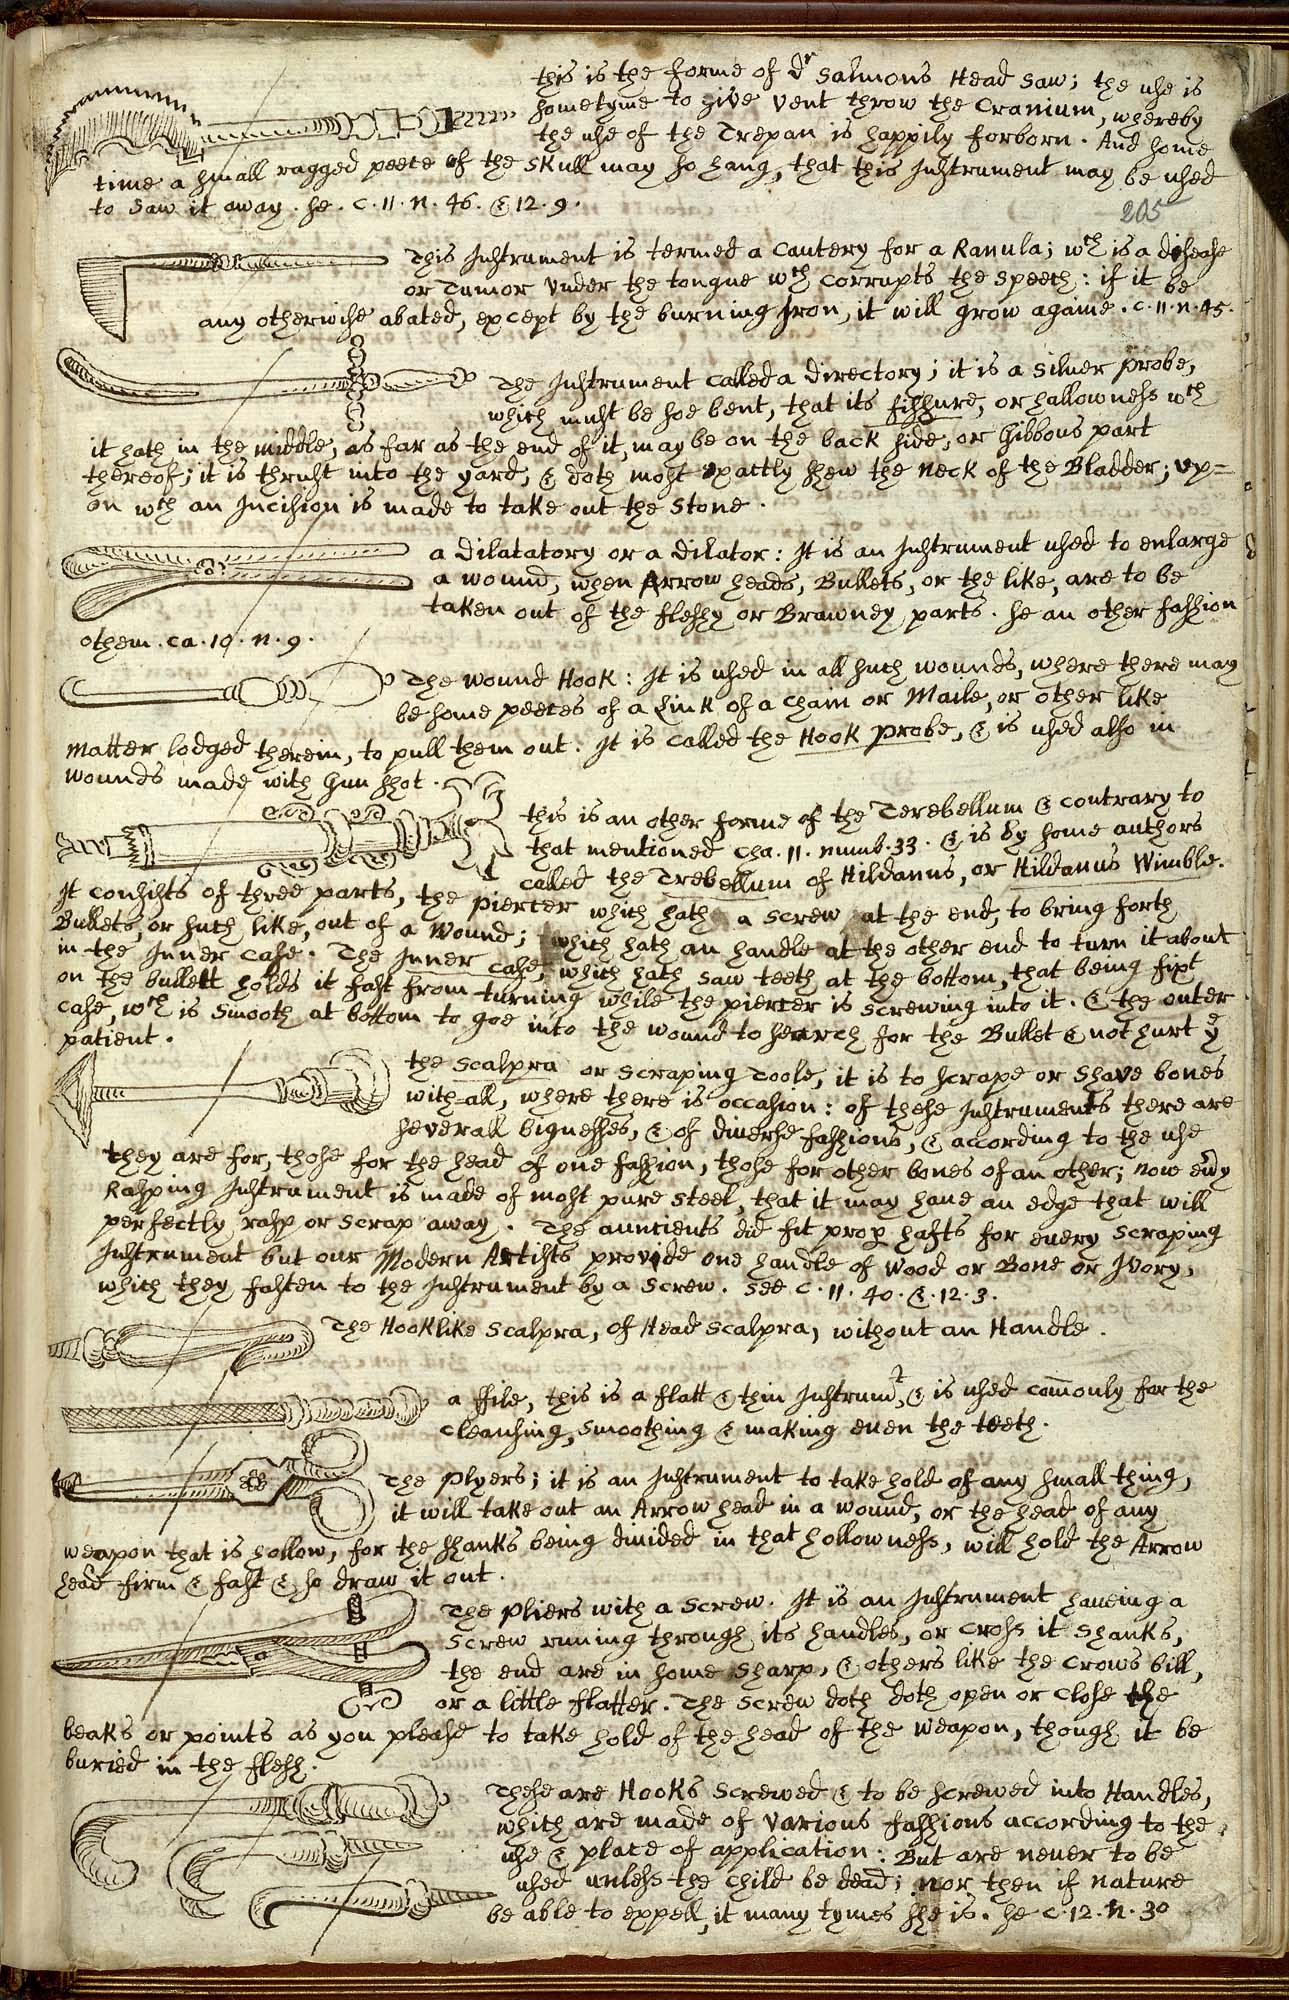 this is the forme of dr Salmons Head Saw; the use is
sometyme to give vent throw the Cranium, whereby
the use of the Trepan is happily forborn. And some
time a small ragged peece of the skull may so hang, that this Instrument may be used
to Saw it away. se. c. 11. n. 46. & 12. 9.
205
This Instrument is termed a Cautery for a Ranula; wch is a disease
or Tumor vnder the tongue wch Corrupts the Speech: if it be
any otherwise abated, except by the burning Iron, it will grow againe. c. 11. n. 45.
The Instrument called a directory; it is a Siluer probe,
which must be soe bent, that its fissure, or hallowness wch
it hath in the middle, as far as the end of it, may be on the back side, or Gibbous part
thereof; it is thrust into the yard, & doth most exactly shew the Neck of the Bladder; vp=
on wch an Incision is made to take out the Stone.
a Dilatatory or a Dilator: It is an Instrument used to enlarge
a wound, when Arrow heads, Bullets, or the like, are to be
taken out of the fleshy or Brawney parts. se an other fashion
othem. ca. 10. n. 9.
The wound Hook: It is used in all such wounds, where there may
be some peeces of a Link of a Chain or Maile, or other like
matter lodged therein, to pull them out. It is called the Hook probe, & is used also in
wounds made with Gun shot.
this is an other forme of the Terebellum & contrary to
that mentioned cha. 11. numb. 33. & is by some authors
called the Trebellum of Hildanus, or Hildanus Wimble.
It consists of three parts, the piercer which hath a screw at the end, to bring forth
Bullets, or such like, out of a Wound; which hath an handle at the other end to turn it about
in the Inner Case. The Inner case, which hath saw teeth at the bottom, that being fixt
on the bullett holds it fast from turning while the piercer is screwing into it. & the outer
case, wch is Smooth at bottom to goe into the wound to search for the Bullet & not hurt ye
patient.
the Scalpra or Scraping Toole, it is to scrape or shave bones
with-all, where there is occasion: of these Instruments there are
severall bignesses, & of diuerse fashions, & according to the use
they are for, those for the head of one fashion, those for other bones of an other; now eury
Rasping Instrument is made of most pure Steel, that it may haue an edge that will
perfectly rasp or scrap away. The auncients did fit prop hafts for euery scraping
Instrument but our Modern Artists provide one handle of Wood or Bone or Ivory,
which they fasten to the Instrument by a Screw. See c. 11. 40. &. 12. 3.
The Hooklike Scalpra, of Head Scalpra, without an Handle.
a ffile, this is a flatt & thin Instrumt, & is used comonly for the
Cleansing, Smoothing & making euen the teeth.
The Plyers; it is an Instrument to take hold of any small thing,
it will take out an Arrow head in a wound, or the head of any
weapon that is hollow, for the shanks being diuided in that hollowness, will hold the Arrow
head firm & fast & so draw it out.
The pliers with a Screw. It is an Instrument haueing a
Screw runing through its handles, or cross it Shanks,
the end are in some Sharp, & others like the Crows bill,
or a little flatter. The Screw doth doth open or close the
beaks or points as you please to take hold of the head of the weapon, though it be
buried in the flesh.
These are Hooks Screwed & to be screwed into Handles,
which are made of various fashions according to the
use & place of application: But are neuer to be
used unless the Child be dead; nor then if nature
be able to expell it many tymes she is. se c. 12. n. 30